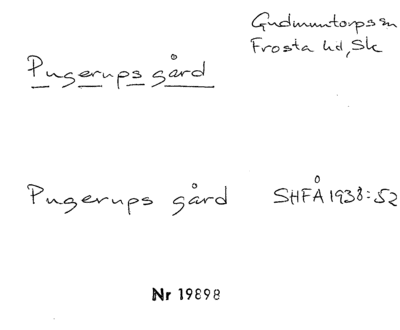 Gudmuntorps sn
Frosta hd, Sk
Pugerups gård
Pugerups gård SHFÅ 1938:52
Nr 19898